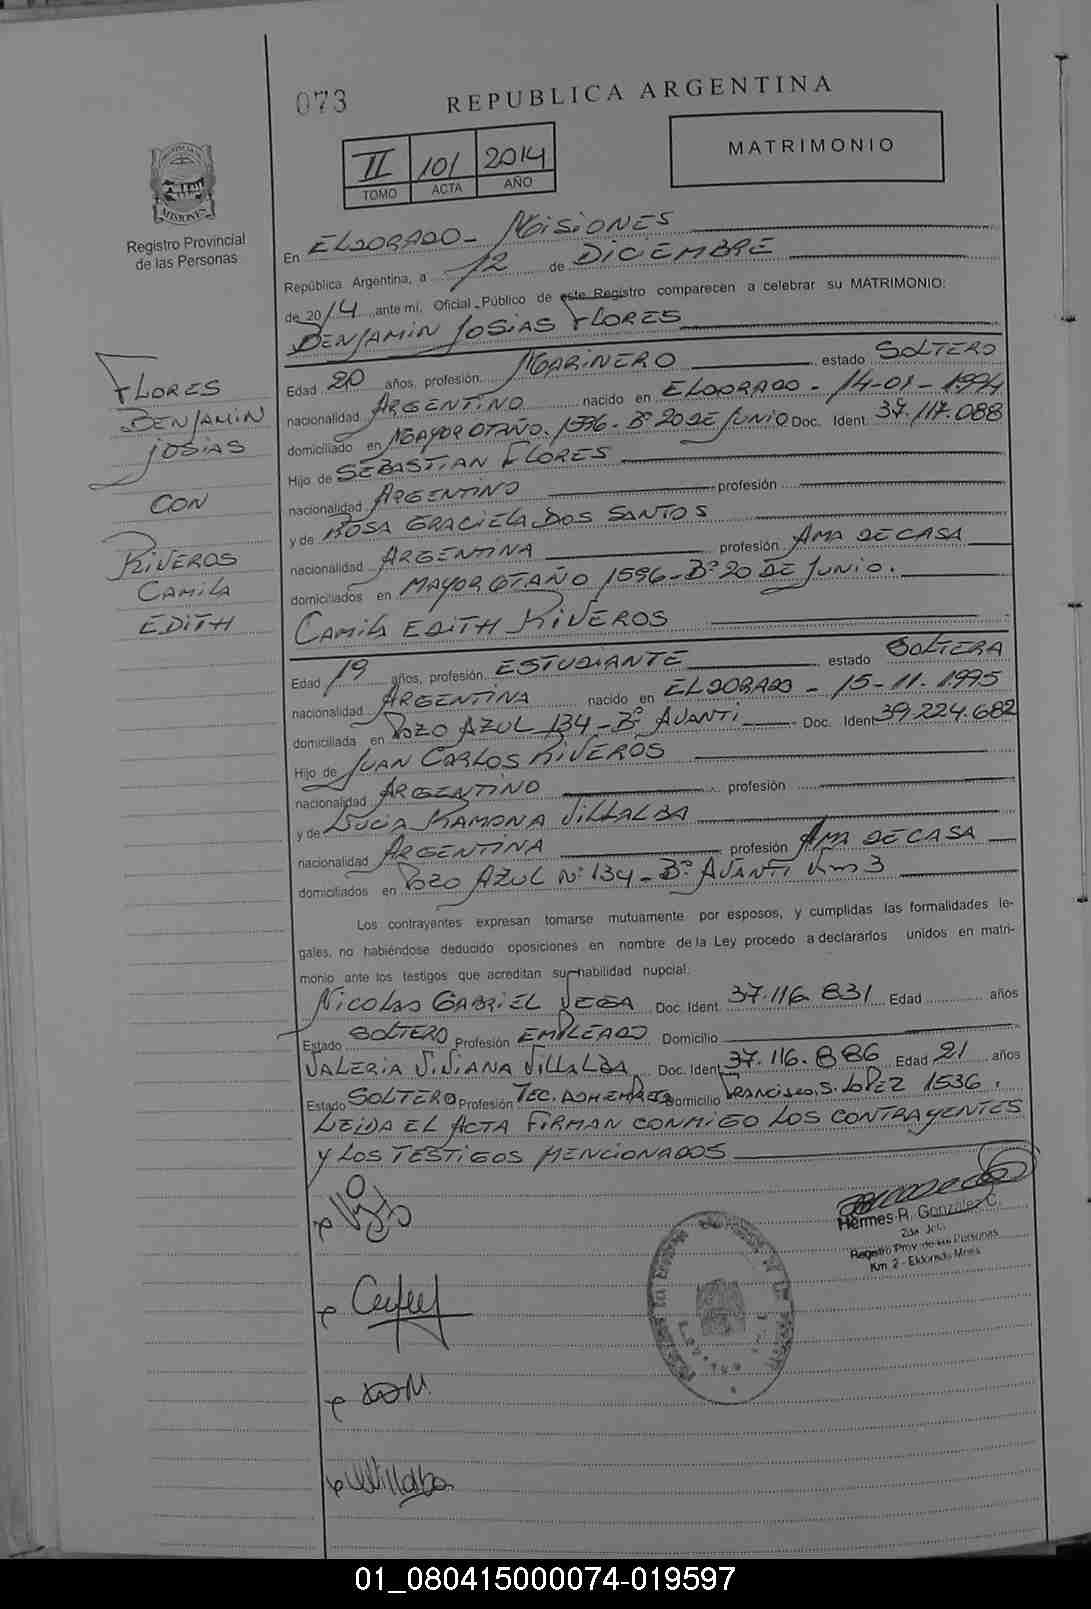 073
REPUBLICA ARGENTINA
II 101 2014
TOMO ACTA AÑO
MATRIMONIO
MISIONES
Registro Provincial
de las Personas
En ELDORADO - MISIONES
República Argentina, a 12 de DICIEMBRE
de 2014 ante mi, Oficial Público de este Registro comparecen a celebrar su MATRIMONIO:
BENJAMIN JOSIAS FLORES
Edad 20 años, profesión MARINERO estado SOLTERO
nacionalidad ARGENTINO nacido en ELDORADO - 14-01-1994
domiciliado en MAYOR OTAÑO 1596 - Bº 20 DE JUNIO Doc. Ident. 37.117.088
Hijo de SEBASTIAN FLORES
nacionalidad ARGENTINO profesión
y de ROSA GRACIELA DOS SANTOS
nacionalidad ARGENTINA profesión AMA DE CASA
domiciliados en MAYOR OTAÑO 1596 - Bº 20 DE JUNIO.
CAMILA EDITH RIVEROS
Edad 19 años, profesión ESTUDIANTE estado SOLTERA
nacionalidad ARGENTINA nacido en ELDORADO - 15-11-1995
domiciliada en POZO AZUL 134 - Bº AVANTI Doc. Ident 39.224.682
Hijo de JUAN CARLOS RIVEROS
nacionalidad ARGENTINO profesión
y de LUCIA RAMONA VILLALBA
nacionalidad ARGENTINA profesión AMA DE CASA
domiciliados en POZO AZUL Nº 134 - Bº AVANTI Km 3
Los contrayentes expresan tomarse mutuamente por esposos, y cumplidas las formalidades le-
gales, no habiéndose deducido oposiciones en nombre de la Ley procedo a declararlos unidos en matri-
monio ante los testigos que acreditan su habilidad nupcial:
NICOLAS GABRIEL VEGA Doc. Ident. 37.116.831 Edad años
Estado SOLTERO Profesión EMPLEADO Domicilio
VALERIA VIVIANA VILLALBA Doc. Ident. 37.116.886 Edad 21 años
Estado SOLTERO Profesión TEC. ADM EMPRES Domicilio FRANCISCO S. LOPEZ 1536.
LEIDA EL ACTA FIRMAN CONMIGO LOS CONTRAYENTES
Y LOS TESTIGOS MENCIONADOS
FLORES
BENJAMIN
JOSIAS
CON
RIVEROS
CAMILA
EDITH
Hermes R. González C.
2do Jefe
Registro Prov. de las Personas
Km. 2 - Eldorado Mnes
VVillalba
01_080415000074-019597